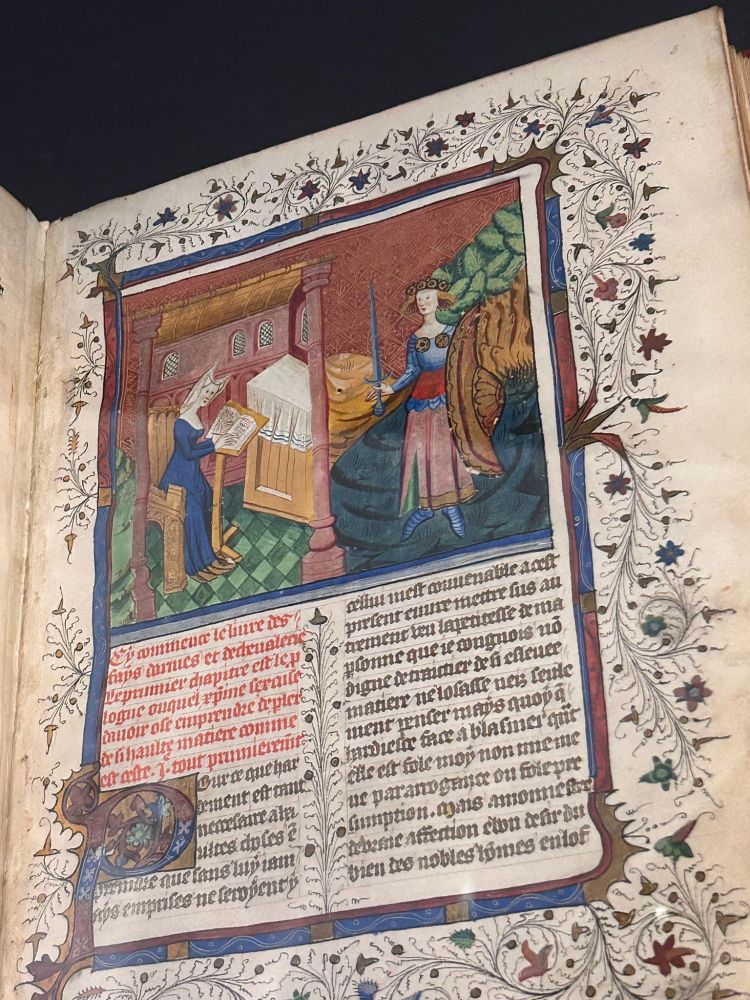 Cy commence le liure des
fays darmes et de cheualerie
Le premier chapitre est le p
logue ouquel xpine sexcuse
dauoir ose emprendre de pler
de si haulte matiere comme
est ceste. Et tout premierement
Pour ce que har
dement est tant
necessaire a ha
ultes choses e
prendre que sans luy iam
ays emprises ne seroyent
cellui mest conuenable a cest
present euure mettre sus au
trement veu la petitesse de ma
psonne que ie congnois nō
digne de traictier de si esleuee
matiere ne losasse nez seule
ment penser mays quoy q̄
hardiesse face a blasmer quāt
elle est fole moy non mie me
ue par arrogance ou fole pre
sumption. Mays amonnestee
de vraie affection et bon desir du
bien des nobles hōmes en lof